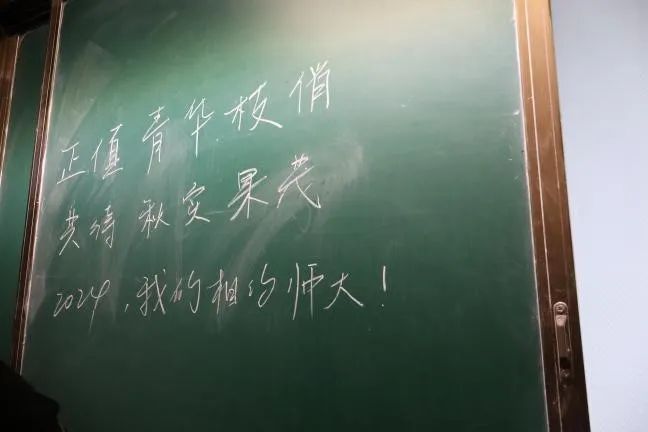 正值青华枝俏
共待秋实果茂
2024，我们相约师大！